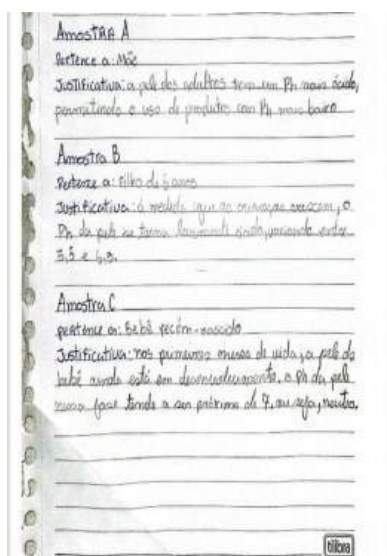 Amostra A
Pertence a: Mãe
Justificativa: a pele dos adultos tem um Ph mais ácido,
permitindo o uso de produtos com Ph mais baixo
Amostra B
Pertence a: Filho de 5 anos
Justificativa: à medida que as crianças crescem, o
Ph da pele se torna levemente ácido, variando entre
5,5 e
Amostra C
pertence a: Bebê recém-nascido
Justificativa: nos primeiros meses de vida, a pele do
bebê ainda está em desenvolvimento. o Ph da pele
nessa fase tende a ser próximo de 7, ou seja, neutro.
tilibra